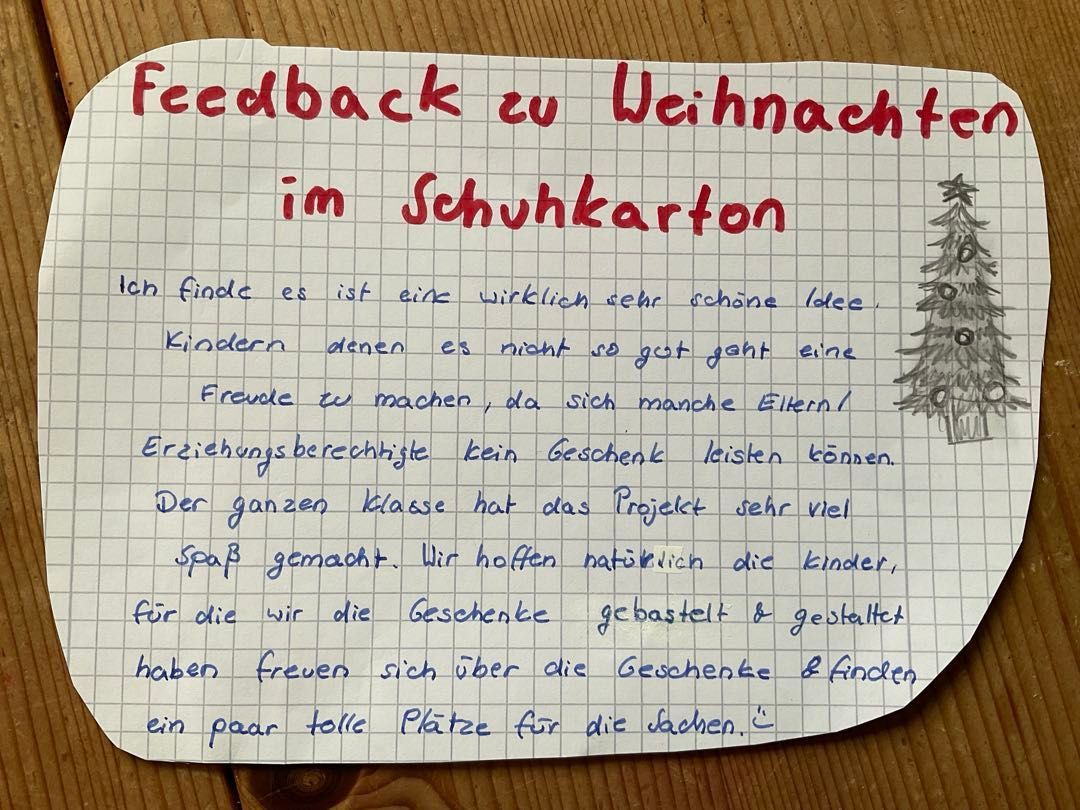 Feedback zu Weihnachten
im Schuhkarton
Ich finde es ist eine wirklich sehr schöne Idee.
Kindern denen es nicht so gut geht eine
Freude zu machen, da sich manche Eltern/
Erziehungsberechtigte kein Geschenk leisten können.
Der ganzen Klasse hat das Projekt sehr viel
Spaß gemacht. Wir hoffen natürlich die Kinder,
für die wir die Geschenke gebastelt & gestaltet
haben freuen sich über die Geschenke & finden
ein paar tolle Plätze für die Sachen. :)